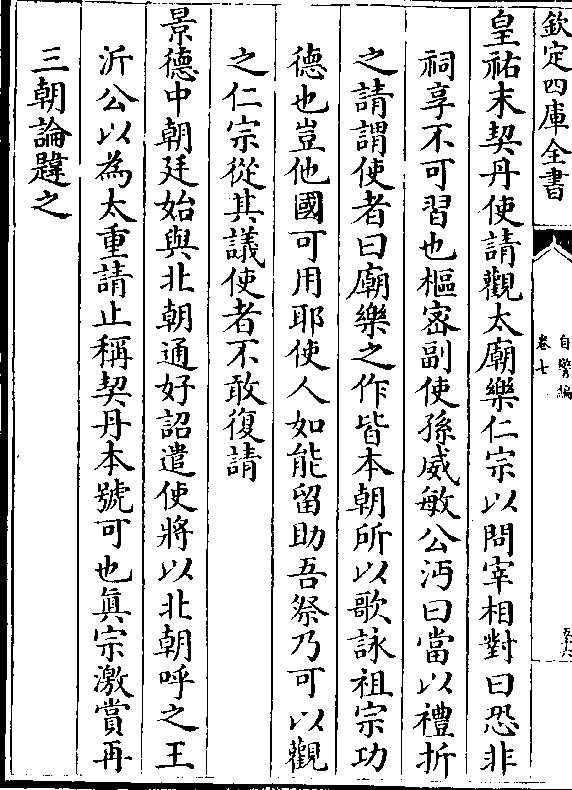 欽定四庫全書
自警編
卷七
皇祐末契丹使請觀太廟樂仁宗以問宰相對曰恐非
祠享不可習也樞密副使孫威敏公沔曰當以禮折
之請謂使者曰廟樂之作皆本朝所以歌詠祖宗功
德也豈他國可用耶使人如能留助吾祭乃可以觀
之仁宗從其議使者不敢復請
景德中朝廷始與北朝通好詔遣使將以北朝呼之王
沂公以為太重請止稱契丹本號可也真宗激賞再
三朝論韙之